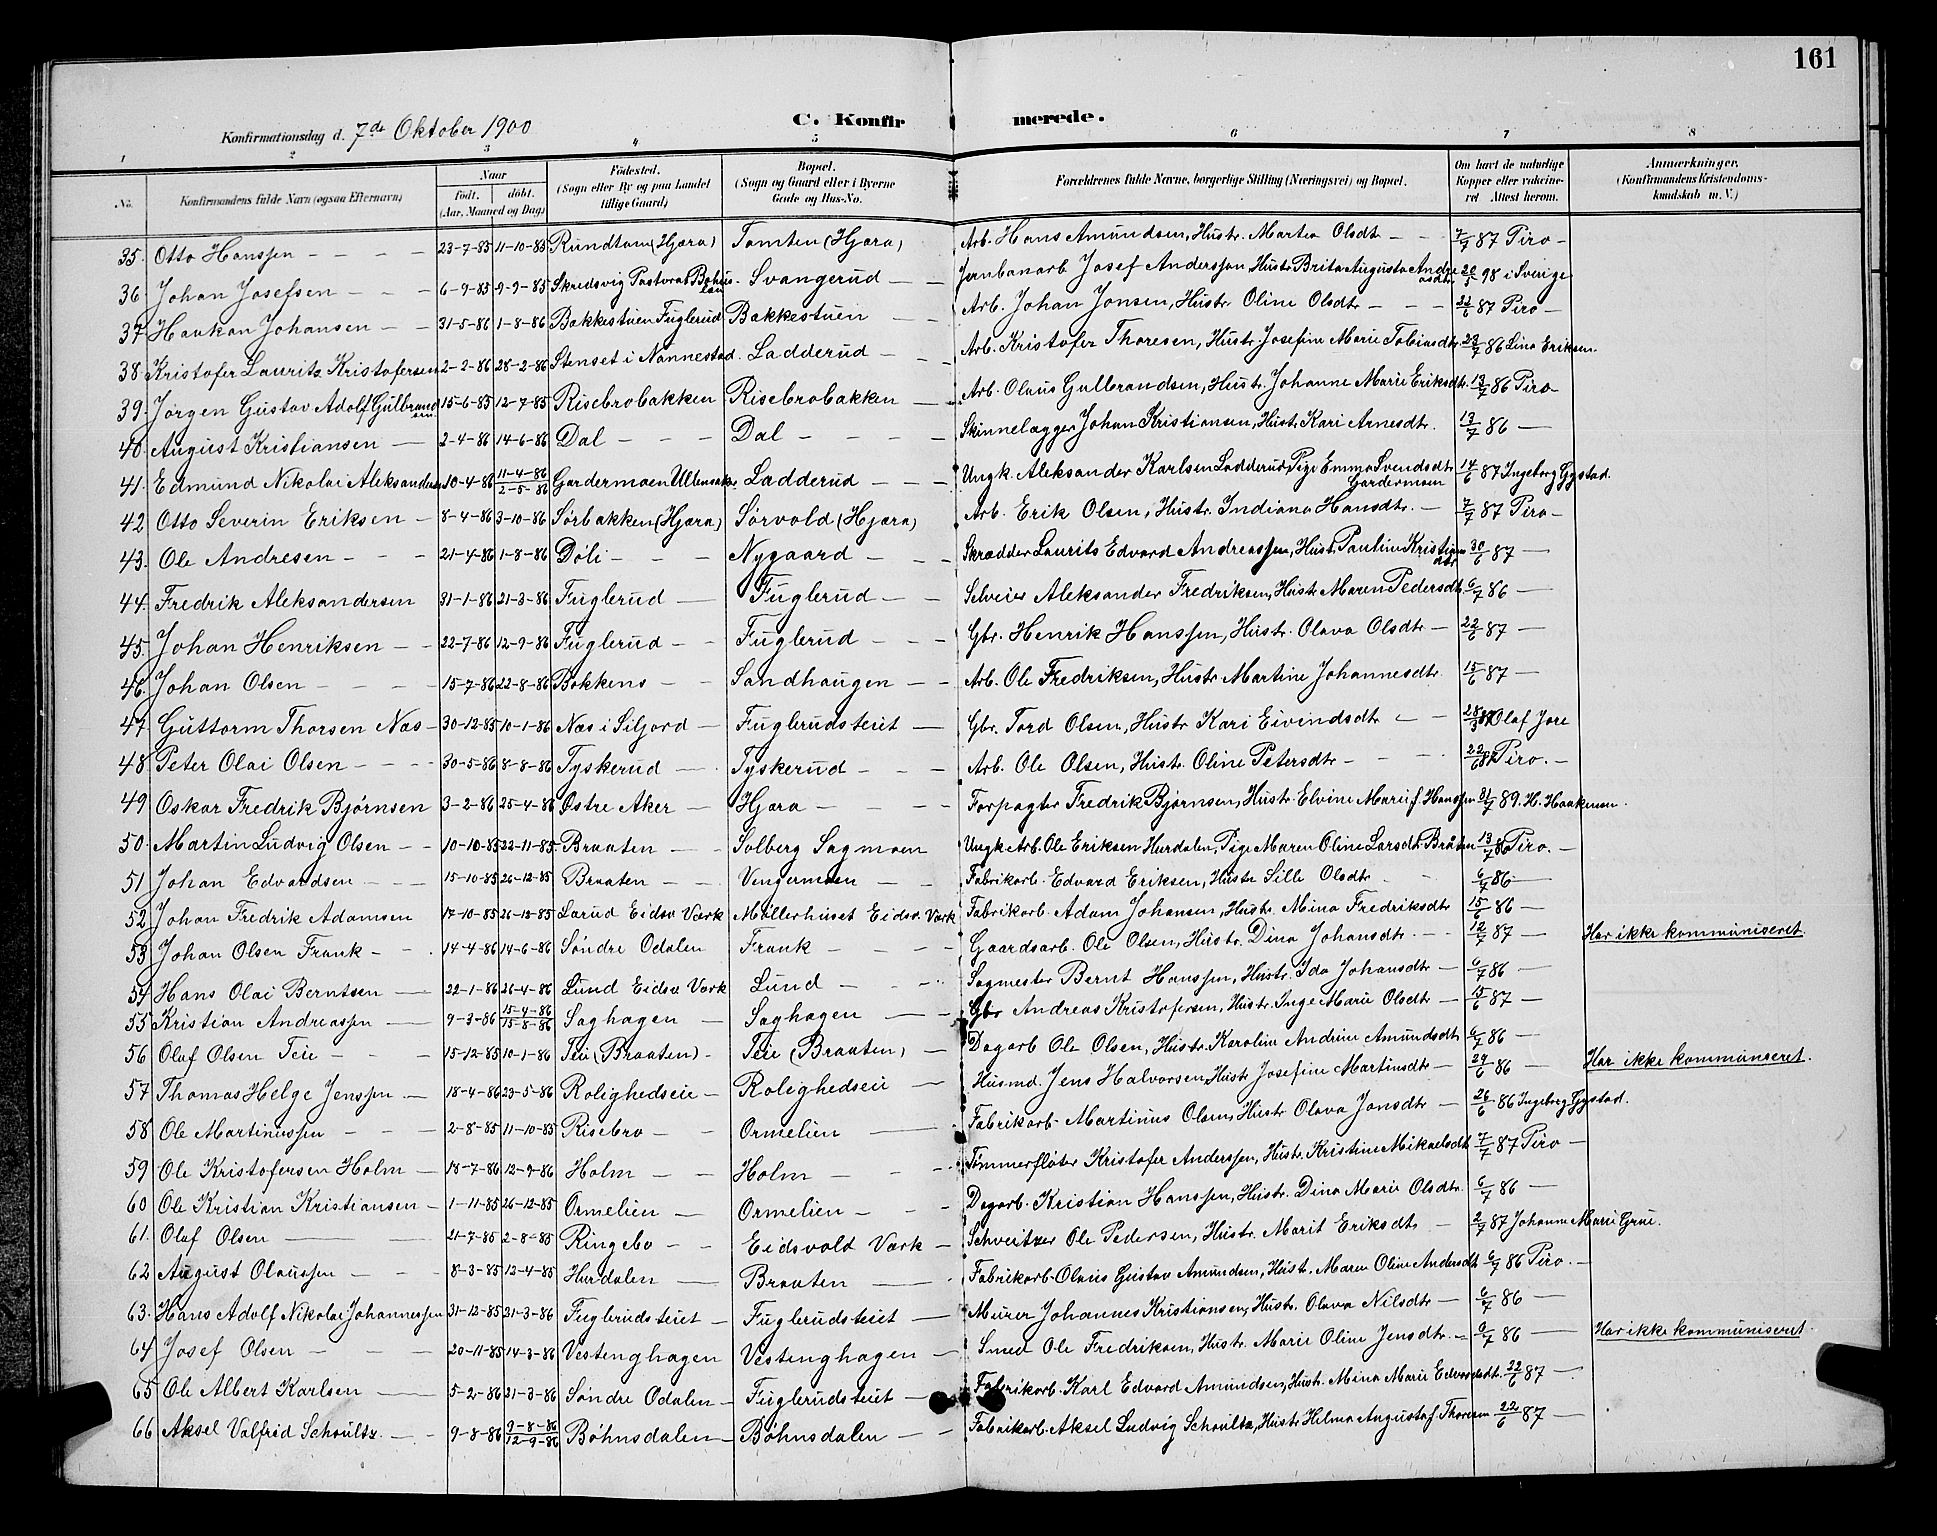 161
Konfirmationsdag d. 7de Oktober 1900
C. Konfirmerede.
1 2 3 4 5 6 7 8
No. Konfirmandens fulde Navn (ogsaa Efternavn) Naar født. døbt. (Aar, Maaned og Dag) Fødested. (Sogn eller By og paa Landet tillige Gaard) Bopæl. (Sogn og Gaard eller i Byerne Gade og Hus-No.) Forældrenes fulde Navne, borgerlige Stilling (Næringsvei) og Bopæl. Om havt de naturlige Kopper eller vakcineret Attest herom. Anmærkninger. (Konfirmandens Kristendomskundskab m. V.)
35. Otto Hanssen 23-7-85 11-10-85 Rundtom (Hjæra) Tomten (Hjæra) Arb. Hans Amundsen, Hustr. Martea Olsdt 7/7 87 Piro
36 Johan Josefsen 6-9-85 9-9-85 Skredsvig Pastorat Bohuslän Svangerud Jernbanarb Josef Anderssen Hustr Brita Augusta Andreasdtr 20/5 98 i Sverige
37 Haakon Johansen 31-5-86 1-8-86 Bakkestuen Fuglerud Bakkestuen Arb. Johan Jonsen, Hustr. Oline Olsdtr 22/6 87 Piro
38. Kristofer Laurits Kristofersen 2-2-86 28-2-86 Stenset i Nannestad Ladderud Arb. Kristofer Thoresen, Hustr Josefine Marie Tobiasdtr 23/7 86 Lina Eriksen.
39. Jørgen Gustav Adolf Gulbrandsen 15-6-85 12-7-85 Risebrobakken Risebrobakken Arb. Olaus Gulbrandsen, Hustr. Johanne Marie Eriksdtr. 13/7 86 Piro
40. August Kristiansen 2-4-86 14-6-86 Dal Dal Skinnelægger Johan Kristiansen, Hustr. Kari Arnesdtr. 13/7 86
41. Edmund Nikolai Aleksandersen 10-4-86 11-4-86 2-5-86 Gardermoen Ullensaker. Ladderud Ungk. Aleksander Karlsen Ladderud, Pige Emma Svendsdtr Gardermoen 14/6 87 Ingeborg Gystad.
42 Otto Severin Eriksen 8-4-86 3-10-86 Sørbakken (Hjæra) Sørvold (Hjæra) Arb. Erik Olsen, Hustr. Indiana Hansdtr. 7/7 87 Piro
43. Ole Andresen 21-4-86 1-8-86 Døli Nygaard Skrædder Laurits Edvard Andreassen, Hustr. Pauline Kristiansdtr 30/6 87
44. Fredrik Aleksandersen 31-1-86 21-3-86 Fuglerud Fuglerud Selveier Aleksander Fredriksen, Hustr Maren Pedersdtr. 6/7 86
45. Johan Henriksen 22-7-86 12-9-86 Fuglerud Fuglerud Gbr. Henrik Hanssen, Hustr. Olava Olsdtr 22/6 87
46. Johan Olsen 15-7-86 22-8-86 Bakkens Sandhaugen Arb. Ole Fredriksen, Hustr Martine Johannesdtr. 15/6 87
47. Guttorm Thorsen Næs 30-12-85 10-1-86 Næs i Siljord Fuglerudsteiet Gbr. Tord Olsen, Hustr Kari Eivindsdtr 28/3 87 Olaf Jore
48 Peter Olai Olsen 30-5-86 8-8-86 Tyskerud Tyskerud Arb. Ole Olsen, Hustr. Oline Petersdtr 22/6 87 Piro.
49 Oskar Fredrik Bjørnsen 3-2-86 25-4-86 Østre Aker Hjæra Forpagter Fredrik Bjørnsen, Hustr Elvine Marie f. Hanssen 31/7 89. H. Haakensen.
50. Martin Ludvig Olsen 10-10-85 22-11-85. Braaten Solberg Sagmoen Ungk. Arb. Ole Eriksen Hurdalen, Pige Maren Oline Larsdtr Bråten 13/7 86 Piro.
51 Johan Edvardsen 15-10-85 26-12-85 Braaten Vengermoen Fabrikarb. Edvard Eriksen, Hustr Sille Olsdtr 6/7 86
52. Johan Fredrik Adamsen 17-10-85 26-12-85 Larud Eidsv Værk Møllerhuset Eidsv. Værk Fabrikarb. Adam Johansen, Hustr. Mina Fredriksdtr 15/6 86
53 Johan Olsen Frank 14-4-86 14-6-86 Søndre Odalen Frank Gaardsarb. Ole Olsen, Hustr. Dina Johansdtr. 12/7 87 Har ikke kommuniseret.
54 Hans Olai Berntsen 22-1-86 26-4-86 Lund Eidsv Værk Lund Sagmester Bernt Hanssen, Hustr. Ida Johansdtr 6/7 86
55 Kristian Andreassen 9-3-86 15-4-86 15-8-86 Saghagen Saghagen Gbr Andreas Kristofersen, Hustr. Inge Marie Olsdtr 15/6 87
56 Olaf Olsen Teie 15-12-85 10-1-86 Teie (Braaten) Teie (Braaten) Dagarb Ole Olsen, Hustr. Karoline Andrine Amundsdtr 6/7 86
57 Thomas Helge Jenssen 18-4-86 23-5-86 Rolighedseie Rolighedseie Husmd. Jens Halvorsen, Hustr Josefine Martinsdtr 24/6 86 Har ikke kommuniseret.
58 Ole Martinussen 2-8-85 11-10-85 Risebro Ormelien Fabrikarb. Martinus Olsen, Hustr Olava Jonsdtr 26/6 86 Ingeborg Gystad.
59 Ole Kristofersen Holm 18-7-86 12-9-86 Holm Holm Tømmerfløter Kristofer Anderssen, Hustr. Kristine Mikaelsdtr 7/7 87 Piro
60 Ole Kristian Kristiansen 1-11-85 26-12-85 Ormelien Ormelien Dagarb. Kristian Hanssen, Hustr. Dina Marie Olsdtr. 6/7 86
61. Olaf Olsen 21-7-85 2-8-85 Ringebo Eidsvold Værk Schveitzer Ole Pedersen, Hustr. Marit Eriksdtr 2/7 87 Johanne Marie Grue.
62 August Olaussen 8-3-85 12-4-85 Hurdalen Braaten Fabrikarb. Olaus Gustav Amundsen, Hustr. Maren Oline Andersdtr 6/7 86 Piro.
63. Hans Adolf Nikolai Johannessen 31-12-85 21-3-86 Fuglerudsteiet Fuglerudsteiet Murer Johannes Kristiansen, Hustr. Olava Nilsdtr 6/7 86
64 Josef Olsen 20-11-85 14-3-86 Vestenghagen Vestenghagen Smed Ole Fredriksen, Hustr. Marie Oline Jensdtr. 6/7 86 Har ikke kommuniseret.
65 Ole Albert Karlsen 5-2-86 21-3-86 Søndre Odalen Fuglerudsteiet Fabrikarb. Karl Edvard Amundsen, Hustr. Mina Marie Edvardsdtr. 22/6 87
66 Aksel Valfrid Schoultz. 9-8-86 9-8-86 12-9-86 Bøhnsdalen Bøhnsdalen Fabrikarb. Aksel Ludvig Schoultz, Hustr Hilma Augusta f. Thoresen 22/6 87